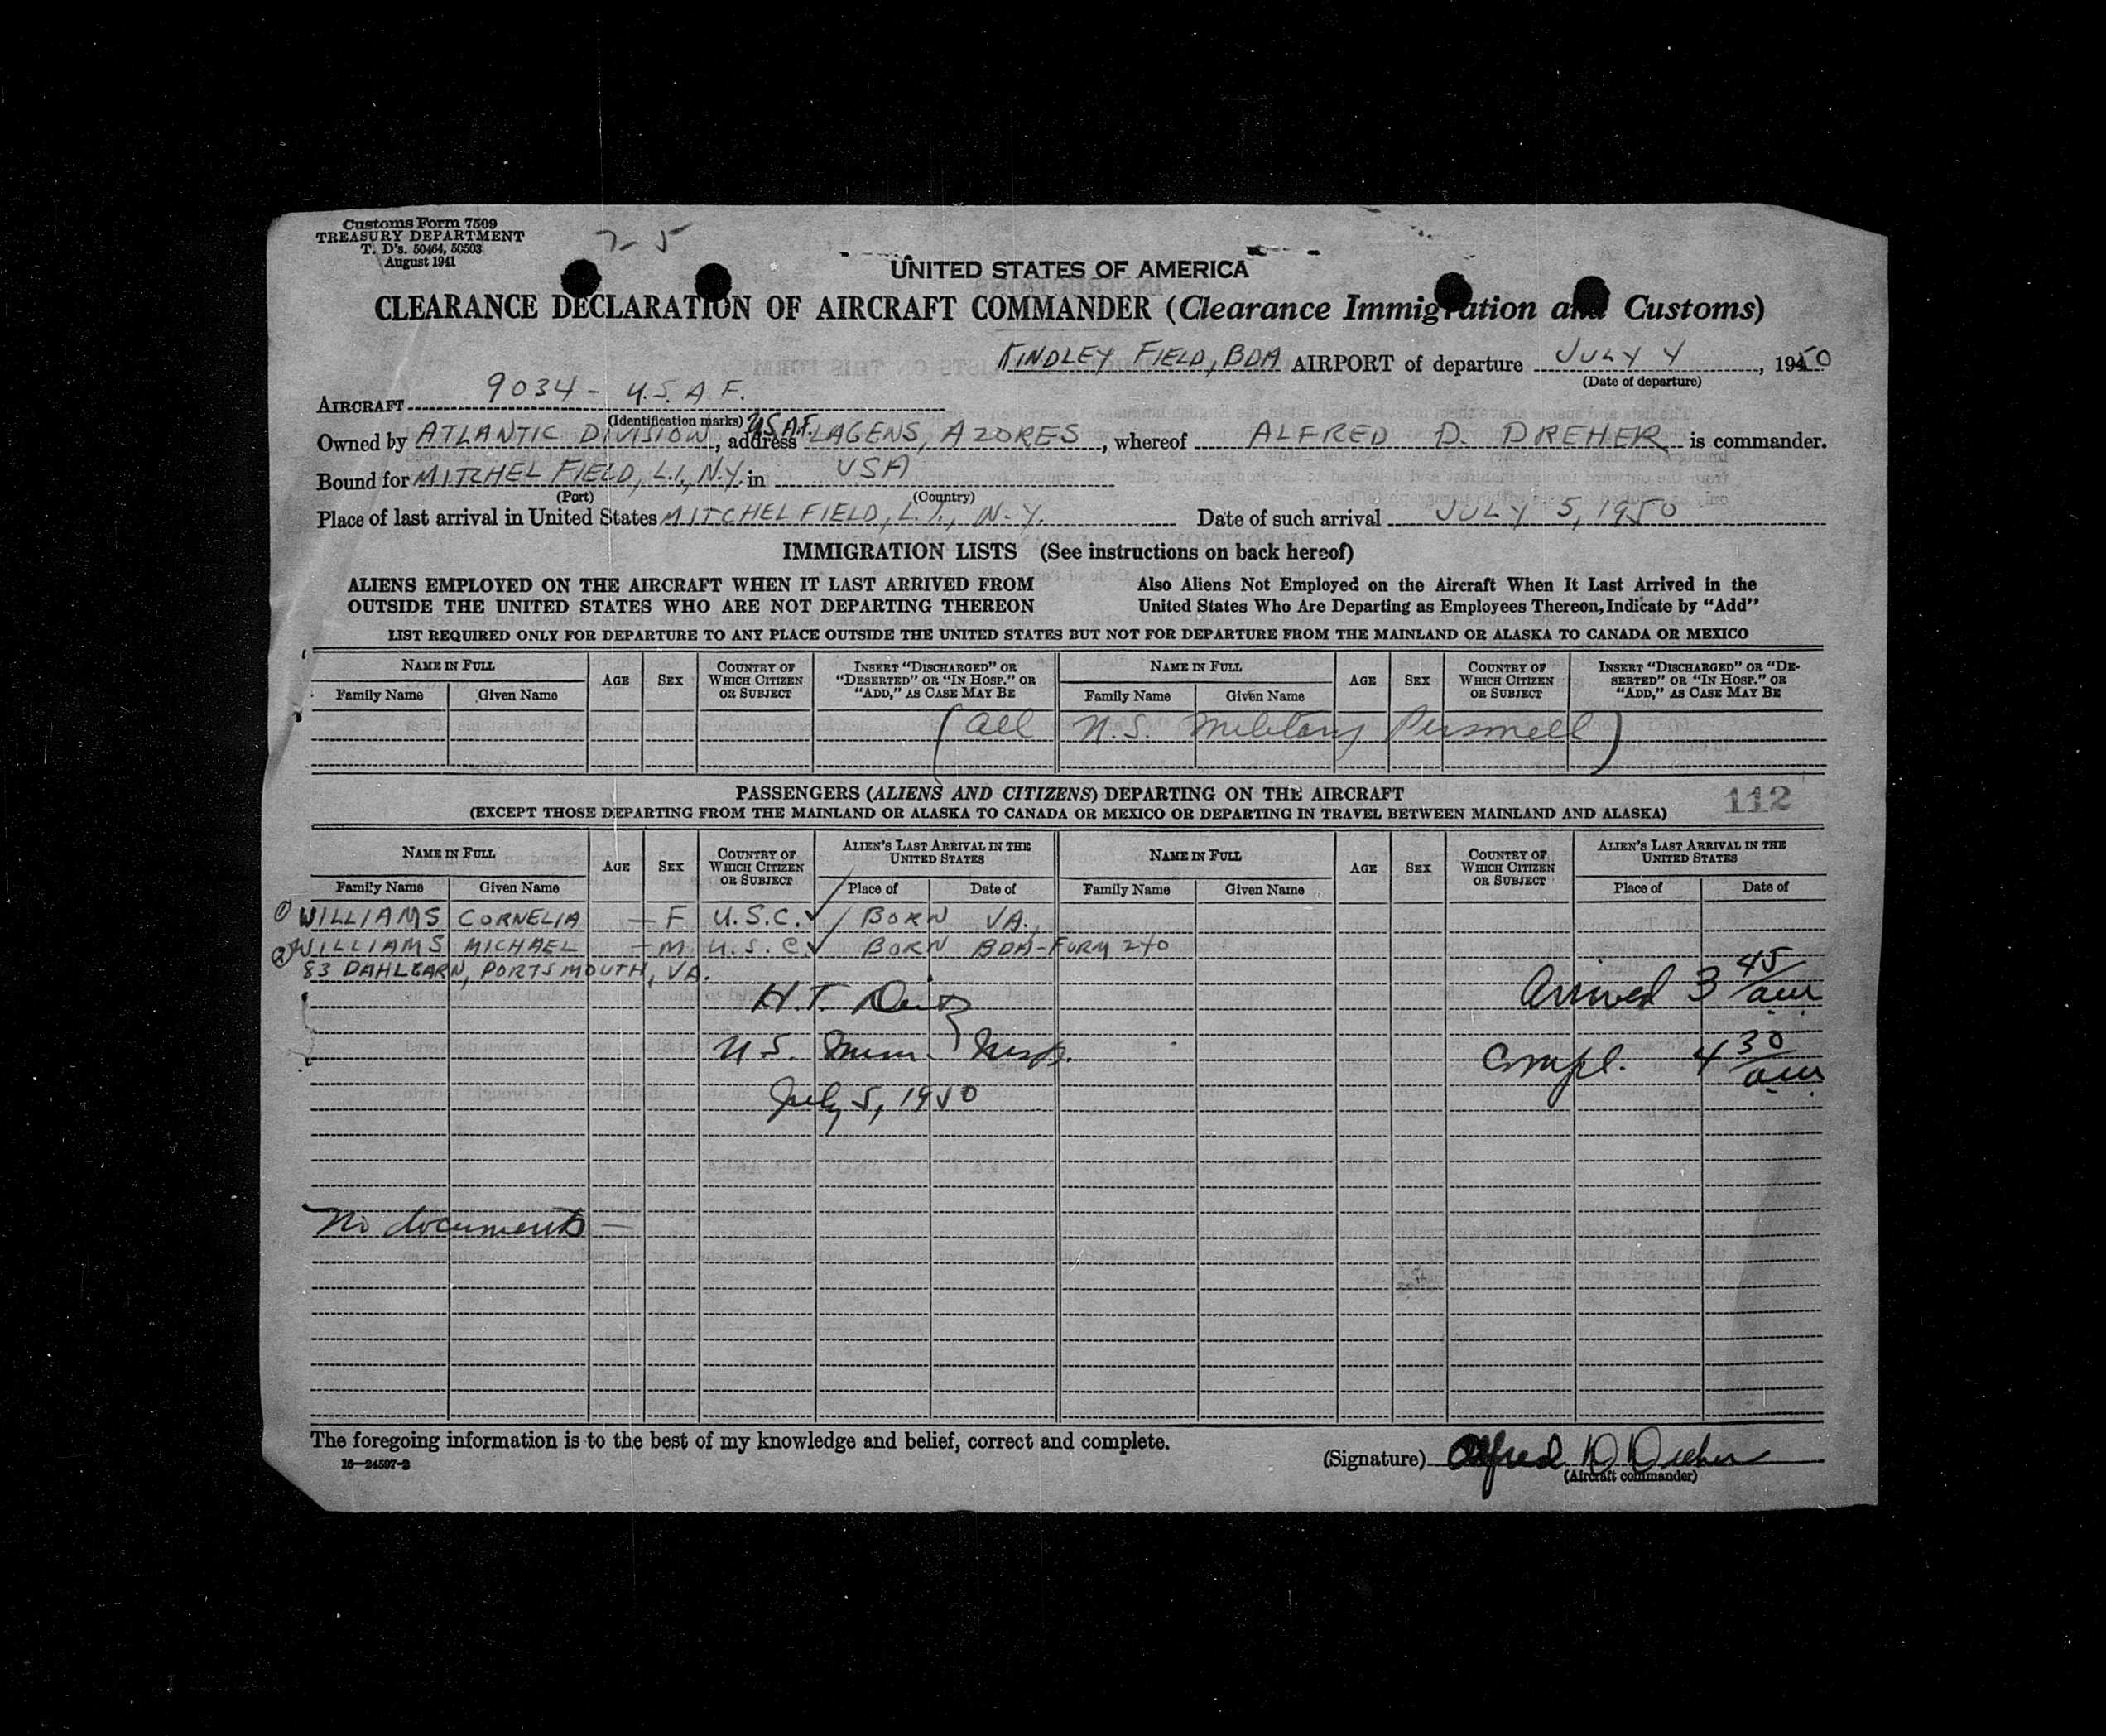 Customs Form 7509
TREASURY DEPARTMENT
T. D's. 50464, 50503
August 1941
7-5
UNITED STATES OF AMERICA
CLEARANCE DECLARATION OF AIRCRAFT COMMANDER (Clearance Immigration and Customs)
KINDLEY FIELD, BDA AIRPORT of departure JULY 4, 1950
(Date of departure)
AIRCRAFT 9034 - U.S.A.F.
(Identification marks)
Owned by ATLANTIC DIVISION, address USAF. LAGENS, AZORES, whereof ALFRED D. DREHER is commander.
Bound for MITCHEL FIELD, L.I., N.Y. in USA
(Port) (Country)
Place of last arrival in United States MITCHEL FIELD, L.I., N.Y. Date of such arrival JULY 5, 1950
IMMIGRATION LISTS (See instructions on back hereof)
ALIENS EMPLOYED ON THE AIRCRAFT WHEN IT LAST ARRIVED FROM
OUTSIDE THE UNITED STATES WHO ARE NOT DEPARTING THEREON
Also Aliens Not Employed on the Aircraft When It Last Arrived in the
United States Who Are Departing as Employees Thereon, Indicate by "Add"
LIST REQUIRED ONLY FOR DEPARTURE TO ANY PLACE OUTSIDE THE UNITED STATES BUT NOT FOR DEPARTURE FROM THE MAINLAND OR ALASKA TO CANADA OR MEXICO
NAME IN FULL
Family Name Given Name
AGE
SEX
COUNTRY OF
WHICH CITIZEN
OR SUBJECT
INSERT "DISCHARGED" OR
"DESERTED" OR "IN HOSP." OR
"ADD," AS CASE MAY BE
NAME IN FULL
Family Name Given Name
AGE
SEX
COUNTRY OF
WHICH CITIZEN
OR SUBJECT
INSERT "DISCHARGED" OR "DE-
SERTED" OR "IN HOSP." OR
"ADD," AS CASE MAY BE
(All U.S. Military Personnell)
PASSENGERS (ALIENS AND CITIZENS) DEPARTING ON THE AIRCRAFT
112
(EXCEPT THOSE DEPARTING FROM THE MAINLAND OR ALASKA TO CANADA OR MEXICO OR DEPARTING IN TRAVEL BETWEEN MAINLAND AND ALASKA)
NAME IN FULL
Family Name Given Name
AGE
SEX
COUNTRY OF
WHICH CITIZEN
OR SUBJECT
ALIEN'S LAST ARRIVAL IN THE
UNITED STATES
Place of Date of
NAME IN FULL
Family Name Given Name
AGE
SEX
COUNTRY OF
WHICH CITIZEN
OR SUBJECT
ALIEN'S LAST ARRIVAL IN THE
UNITED STATES
Place of Date of
① WILLIAMS CORNELIA — F U.S.C. ✓ / BORN VA.,
② WILLIAMS MICHAEL — M U.S.C. ✓ BORN BDA-FORM 240
83 DAHLGARN, PORTSMOUTH, VA.
H.T.
Arrived 3 45/am
U.S. Imm. Insp.
Compl. 4 30/am
July 5, 1950
No documents —
The foregoing information is to the best of my knowledge and belief, correct and complete.
16—24597-2
(Signature) Alfred D Dreher
(Aircraft commander)